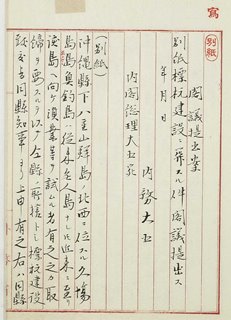 寫
別紙
閣議提出案
別紙標杭建設ニ関スル件閣議提出ス
年月日
内務大臣
内閣総理大臣宛
(別紙)
沖縄縣下八重山群島ノ北西ニ位スル久場
島魚釣島ハ従来無人島ナレトモ近来ニ至リ
該島ヘ向ケ漁業等ヲ試ムル者有之之カ取
締ヲ要スルヲ以テ仝縣ノ所轄トシ標杭建設
致度旨同縣知事ヨリ上申有之右ハ同縣